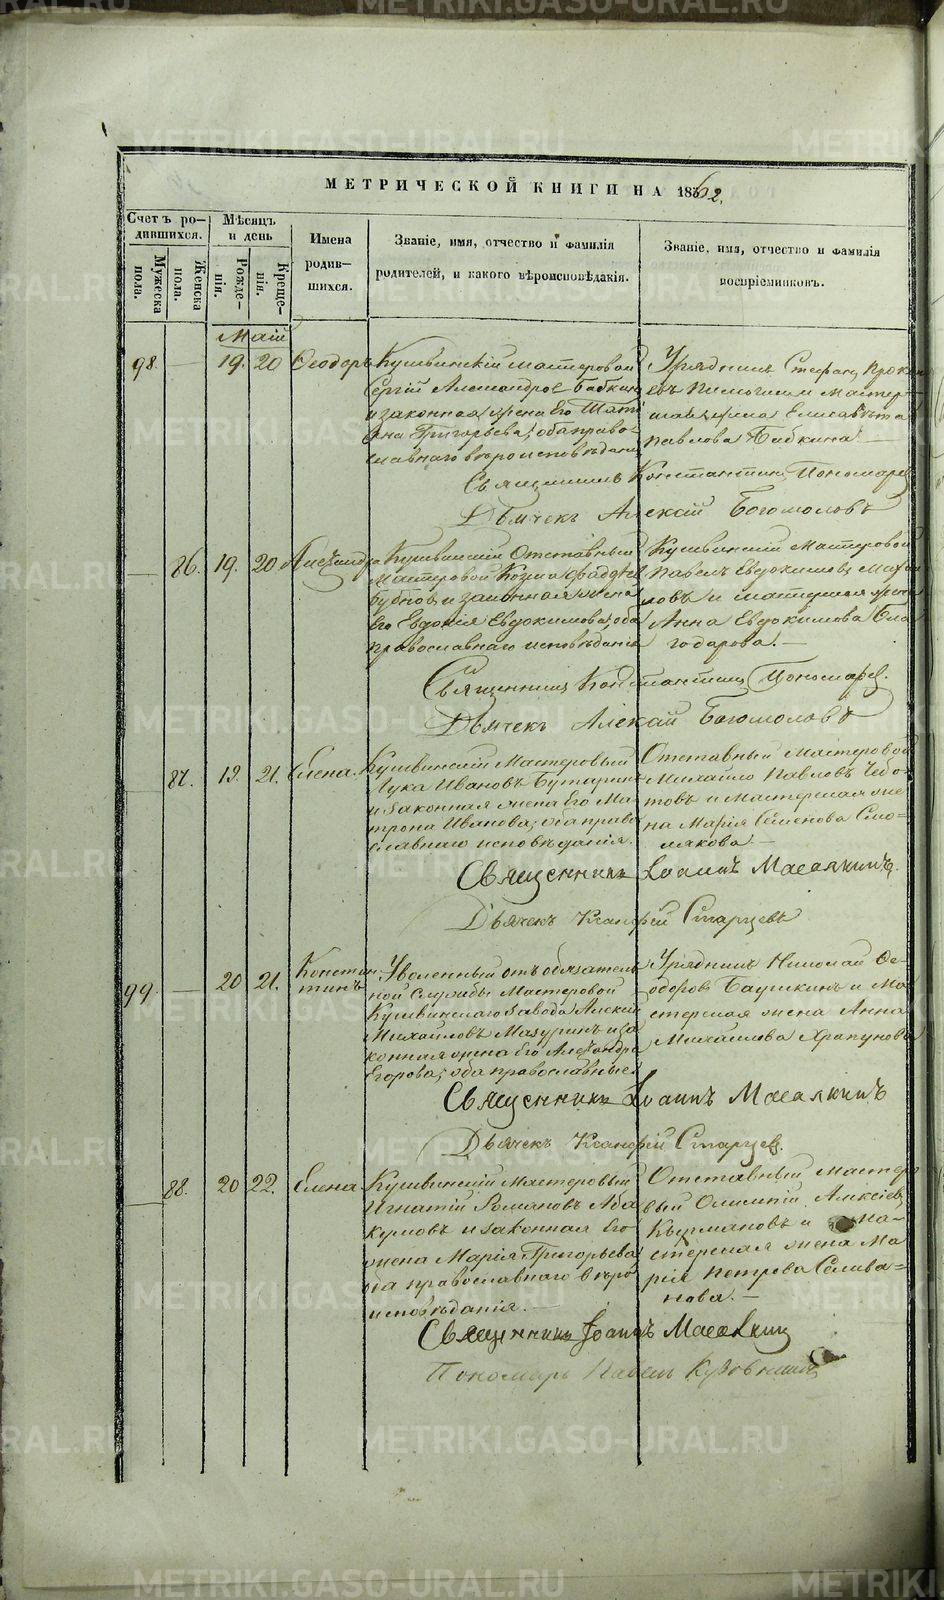 МЕТРИЧЕСКОЙ КНИГИ НА 1862.
Счетъ ро-
дившихся.
Мѣсяцъ
и день
Имена
родив-
шихся.
Званіе, имя, отчество и фамилія
родителей, и какого вѣроисповѣданія.
Званіе, имя, отчество и фамилія
воспріемниковъ.
Мужеска
пола.
Женска
пола.
Рожде-
нія.
Креще-
нія.
Маій
98. — 19. 20 Ѳеодоръ
Кушвинскій мастеровой
Сергій Александровъ Бабкинъ
и законная жена Его Тать
яна Григорьева, оба право-
славнаго вѣроисповѣданія
Урядникъ Стефанъ Прокоп
евъ и Мастер-
ская жена Елисавета
Павлова Бабкина. —
Священникъ Константинъ Пономарев
Дьячекъ Алексій Богомоловъ
— 86. 19. 20 Александра
Кушвинскій Отставный
Мастеровой Козма Фаддѣев
Бубновъ и законная жена
Его Евдокія Евдокимова, оба
православнаго исповѣданія
Кушвинскій Мастеровой
Павелъ Евдокимовъ Михай
ловъ и мастерская жена
Анна Евдокимова Бла
годарова. —
Священникъ Константинъ Пономарев.
Дьячекъ Алексій Богомоловъ
— 87. 19. 21. Елена.
Кушвинскій Мастеровый
Лука Ивановъ Бутаринъ
и законная жена Его Ма-
трона Иванова, оба право
славнаго исповѣданія.
Отставный Мастеровой
Михайло Павловъ Чебо-
товъ и Мастерская же
на Марія Семенова Смо-
лякова. —
Священникъ Іоаннъ Масалкинъ.
Дьячекъ Ксанфій Старцевъ
99. — 20 21. Констан
тинъ
Уволенный отъ обязатель
ной Службы Мастеровой
Кушвинскаго Завода Алексій
Михайловъ Мазуринъ и за
конная жена Его Александра
Егорова, оба православные
Урядникъ Николай Ѳе-
одоровъ Баушкинъ и Ма
стерская жена Анна
Михайлова Храпунова
Священникъ Іоаннъ Масалкинъ
Дьячекъ Ксанфій Старцев.
— 88. 20 22. Елена.
Кушвинскій Мастеровый
Игнатій Романовъ Аба
кумовъ и законная Его
жена Марія Григорьева
оба православнаго вѣро
исповѣданія. —
Отставный Мастеро
вый Олимпій Алексѣев
Кырмановъ и Ма-
стерская жена Ма
рія Петрова Селива-
нова. —
Священникъ Іоаннъ Масалкинъ
Пономарь Павелъ Кузовниковъ